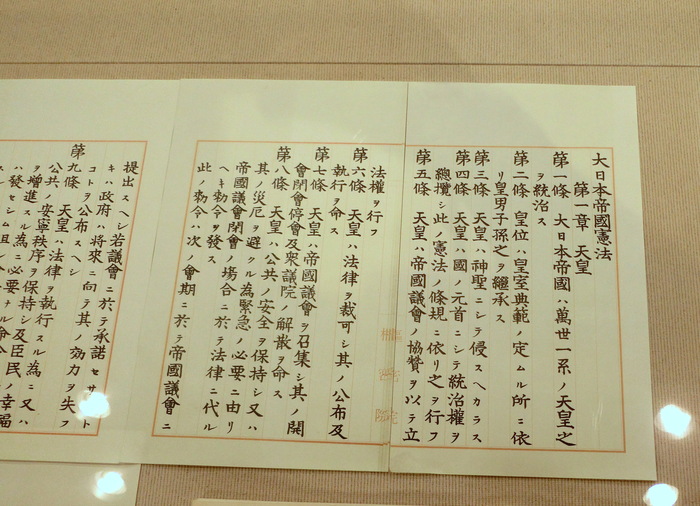 大日本帝國憲法
第一章 天皇
第一條 大日本帝國ハ萬世一系ノ天皇之
ヲ統治ス
第二條 皇位ハ皇室典範ノ定ムル所ニ依
リ皇男子孫之ヲ繼承ス
第三條 天皇ハ神聖ニシテ侵スヘカラス
第四條 天皇ハ國ノ元首ニシテ統治權ヲ
總攬シ此ノ憲法ノ條規ニ依リ之ヲ行フ
第五條 天皇ハ帝國議會ノ協贊ヲ以テ立
法權ヲ行フ
第六條 天皇ハ法律ヲ裁可シ其ノ公布及
執行ヲ命ス
第七條 天皇ハ帝國議會ヲ召集シ其ノ開
會閉會停會及衆議院ノ解散ヲ命ス
第八條 天皇ハ公共ノ安全ヲ保持シ又ハ
其ノ災厄ヲ避クル為緊急ノ必要ニ由リ
帝國議會閉會ノ場合ニ於テ法律ニ代ル
ヘキ勅令ヲ發ス
此ノ勅令ハ次ノ會期ニ於テ帝國議會ニ
提出スヘシ若議會ニ於テ承諾セサルト
キハ政府ハ將來ニ向テ其ノ効力ヲ失フ
コトヲ公布スヘシ
第九條 天皇ハ法律ヲ執行スル為ニ又ハ
公共ノ安寧秩序ヲ保持シ及臣民ノ幸福
ヲ增進スル為ニ必要ナル命令
ハ發セシム但シ
樞密院